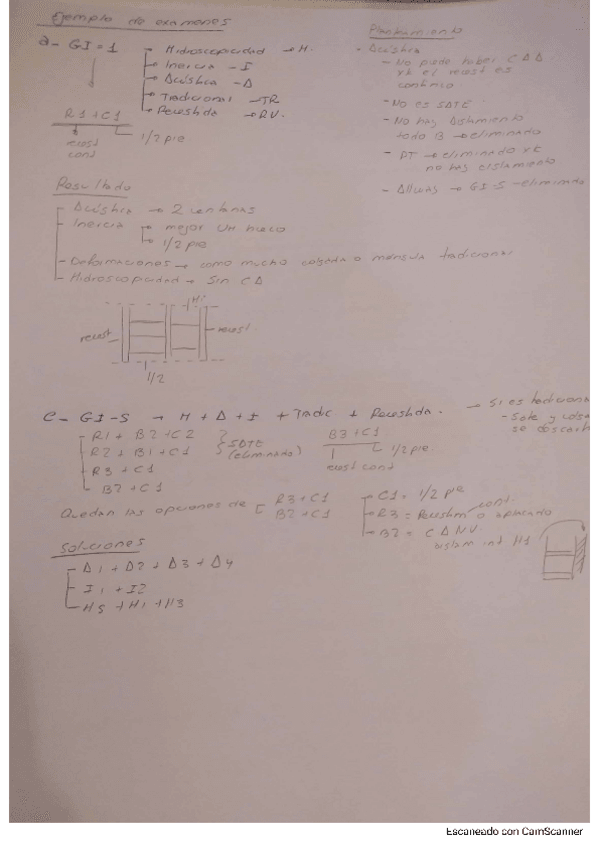 Ejemplo de examenes
a- GI=1
- Hidroscopicidad → H.
- Inercia - I
- Acústica - A
- Tradicional - TR
- Revestida - RV.
R1 + C1
1/2 pie
revest
cont
Planteamiento
- Acústica
- No puede haber CAA
xk el revest es
continuo
- No es SATE
- No hay aislamiento
todo B → eliminado
- PT → eliminado xk
no hay aislamiento
- Alturas → GI-S - eliminado
Resultado
- Acústica → 2 ventanas
- Inercia
mejor UH hueco
1/2 pie
- Deformaciones → como mucho colgada o ménsula tradicional
- Hidroscopicidad → Sin CA
H1
revest
revest
1/2
e- GI-S → H + A + I + Tradic + Revestida.
→ Si es tradicional
- Sate y
se descart
- R1 + B2 + C2
- R2 + B1 + C1
SATE
(eliminado)
- R3 + C1
- B2 + C1
B3 + C1
1/2 pie
revest cont
Quedan las opciones de
R3 + C1
B2 + C1
- C1 = 1/2 pie
- R3 = Revestim cont. o aplacado
- B2 = CANV.
aislam int H1
Soluciones
- A1 + A2 + A3 + A4
- I1 + I2
- H5 + H1 + H3
Escaneado con CamScanner